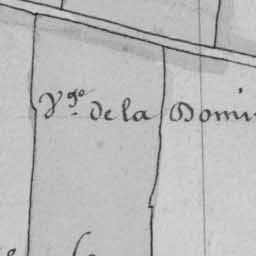 Vgo. de la Domi